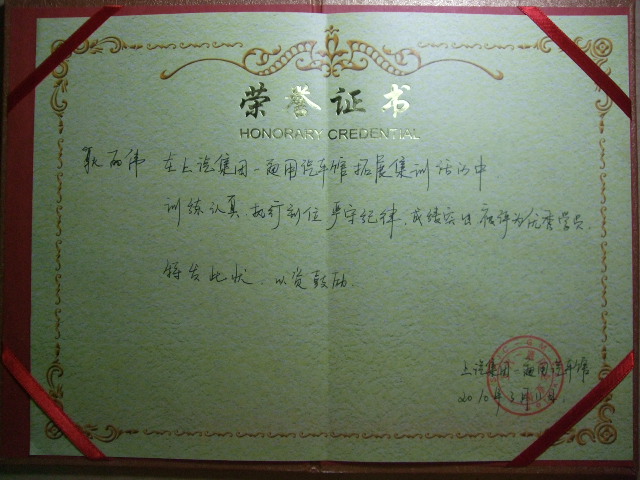 荣誉证书
HONORARY CREDENTIAL
耿丽伟 在上汽集团－通用汽车馆拓展集训活动中
训练认真、执行到位、严守纪律、成绩突出、被评为优秀学员。
特发此状、以资鼓励
上汽集团－通用汽车馆
2010年3月